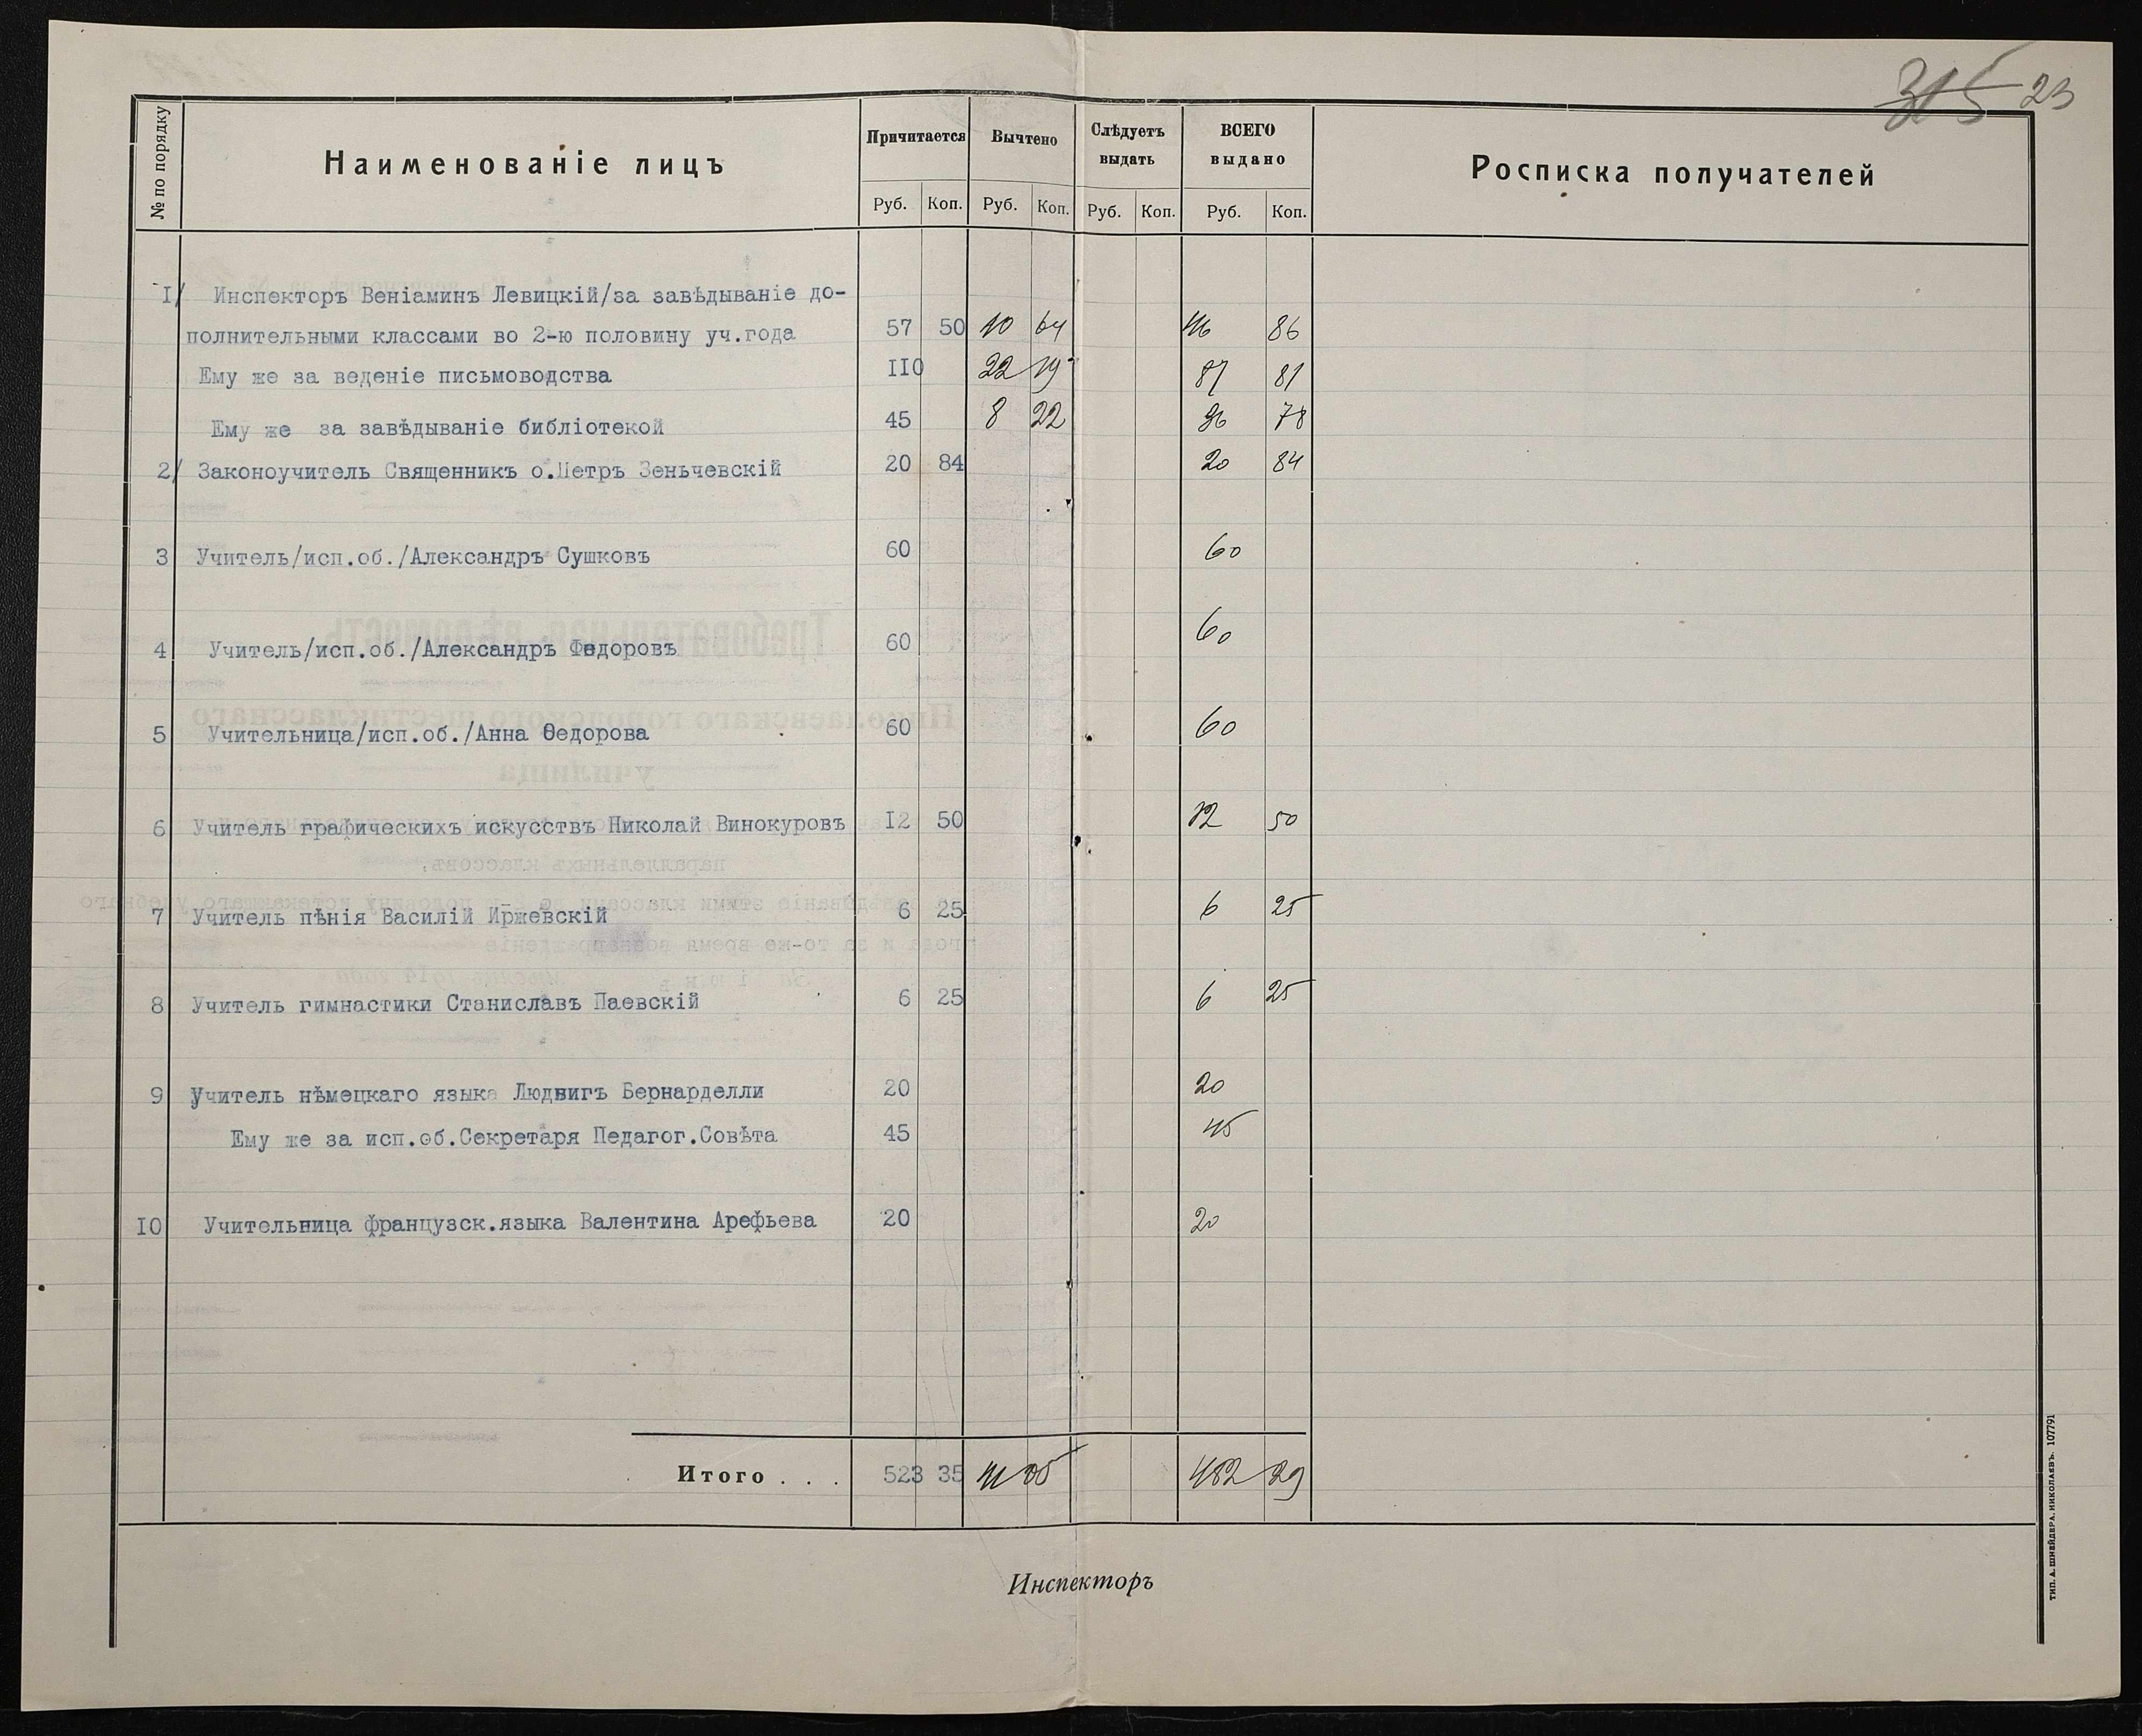 315 23
№ по порядку
Наименованіе лицъ
Причитается
Вычтено
Слѣдуетъ выдать
ВСЕГО выдано
Росписка получателей
Руб. Коп. Руб. Коп. Руб. Коп. Руб. Коп.
I/ Инспекторъ Веніаминъ Левицкій/за завѣдываніе до-
полнительными классами во 2-ю половину уч.года 57 50 10 64 46 86
Ему же за веденіе письмоводства 110 22 19 87 81
Ему же за завѣдываніе библіотекой 45 8 22 36 78
2/ Законоучитель Священникъ о.Петръ Зеньчевскій 20 84 20 84
3 Учитель/исп.об./Александръ Сушковъ 60 60
4 Учитель/исп.об./Александръ Федоровъ 60 60
5 Учительница/исп.об./Анна Ѳедорова 60 60
6 Учитель графическихъ искусствъ Николай Винокуровъ I2 50 12 50
7 Учитель пѣнія Василій Иржевскій 6 25 6 25
8 Учитель гимнастики Станиславъ Паевскій 6 25 6 25
9 Учитель нѣмецкаго языка Людвигъ Бернарделли 20 20
Ему же за исп.об.Секретаря Педагог.Совѣта 45 45
I0 Учительница французск.языка Валентина Арефьева 20 20
Итого . . . 523 35 41 05 482 29
Инспекторъ
ТИП. А. ШНЕЙДЕРА. НИКОЛАЕВЪ. 107791